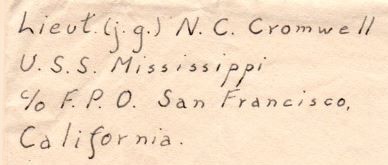 Lieut.(j.g.) N. C. Cromwell
U.S.S. Mississippi
c/o F.P.O. San Francisco,
California.